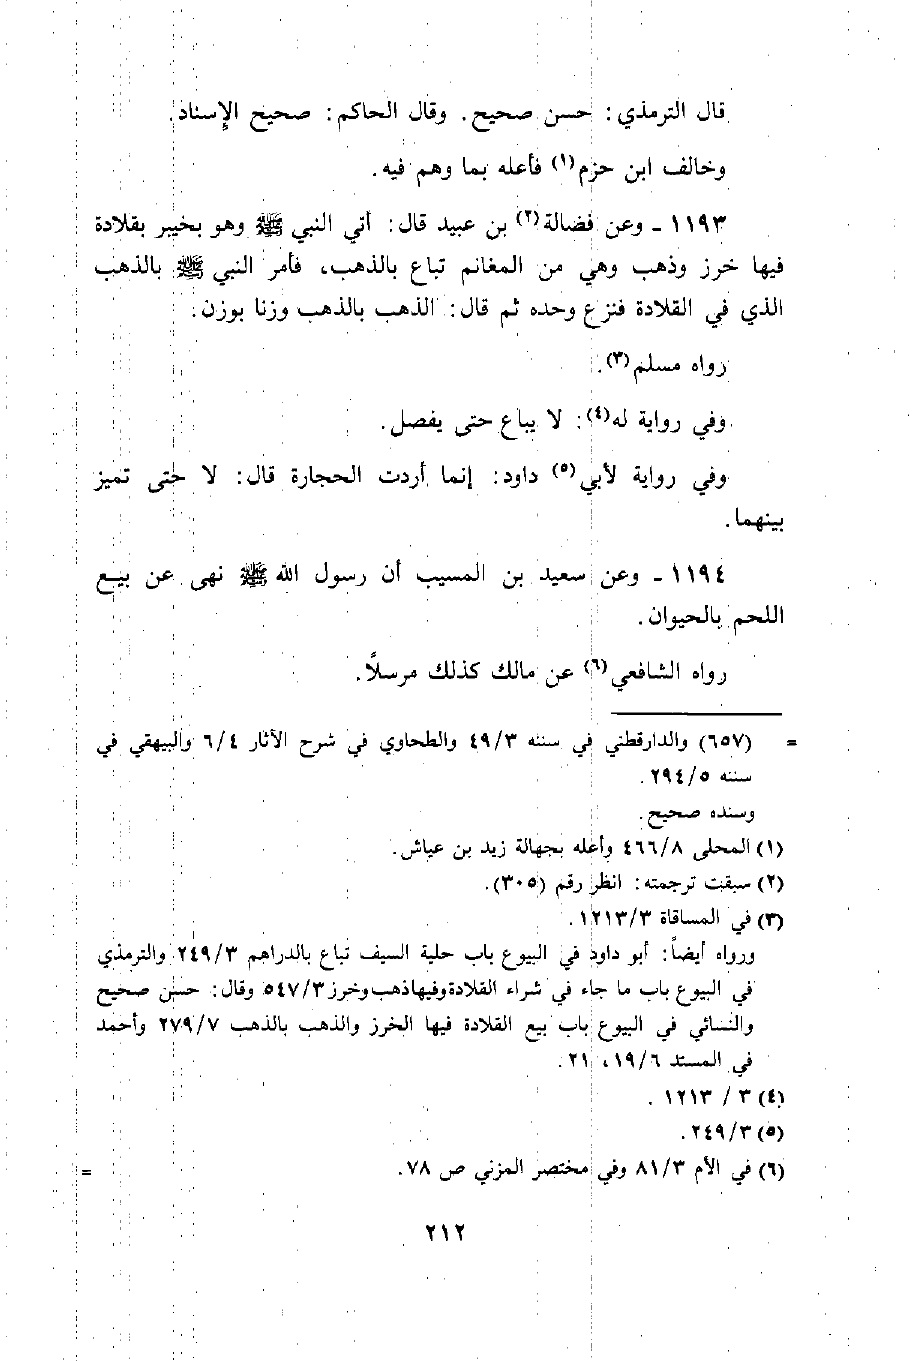 قال الترمذي: حسن صحيح. وقال الحاكم: صحيح الإسناد.
وخالف ابن حزم(١) فأعله بما وهم فيه.
١١٩٣ ـ وعن فضالة(٢) بن عبيد قال: أتي النبي ﷺ وهو بخيبر بقلادة
فيها خرز وذهب وهي من المغانم تباع بالذهب، فأمر النبي ﷺ بالذهب
الذي في القلادة فنزع وحده ثم قال: الذهب بالذهب وزنا بوزن.
رواه مسلم(٣).
وفي رواية له(٤): لا يباع حتى يفصل.
وفي رواية لأبي(٥) داود: إنما أردت الحجارة قال: لا حتى تميز
بينهما.
١١٩٤ ـ وعن سعيد بن المسيب أن رسول الله ﷺ نهى عن بيع
اللحم بالحيوان.
رواه الشافعي(٦) عن مالك كذلك مرسلاً.
= (٦٥٧) والدارقطني في سننه ٤٩/٣ والطحاوي في شرح الآثار ٦/٤ والبيهقي في
سننه ٢٩٤/٥.
وسنده صحيح.
(١) المحلى ٤٦٦/٨ وأعله بجهالة زيد بن عياش.
(٢) سبقت ترجمته: انظر رقم (٣٠٥).
(٣) في المساقاة ١٢١٣/٣.
ورواه أيضاً: أبو داود في البيوع باب حلية السيف تباع بالدراهم ٢٤٩/٣ والترمذي
في البيوع باب ما جاء في شراء القلادة وفيها ذهب وخرز ٥٤٧/٣ وقال: حسن صحيح
والنسائي في البيوع باب بيع القلادة فيها الخرز والذهب بالذهب ٢٧٩/٧ وأحمد
في المسند ١٩/٦، ٢١.
(٤) ٣ / ١٢١٣ .
(٥) ٢٤٩/٣.
(٦) في الأم ٨١/٣ وفي مختصر المزني ص ٧٨. =
٢١٢